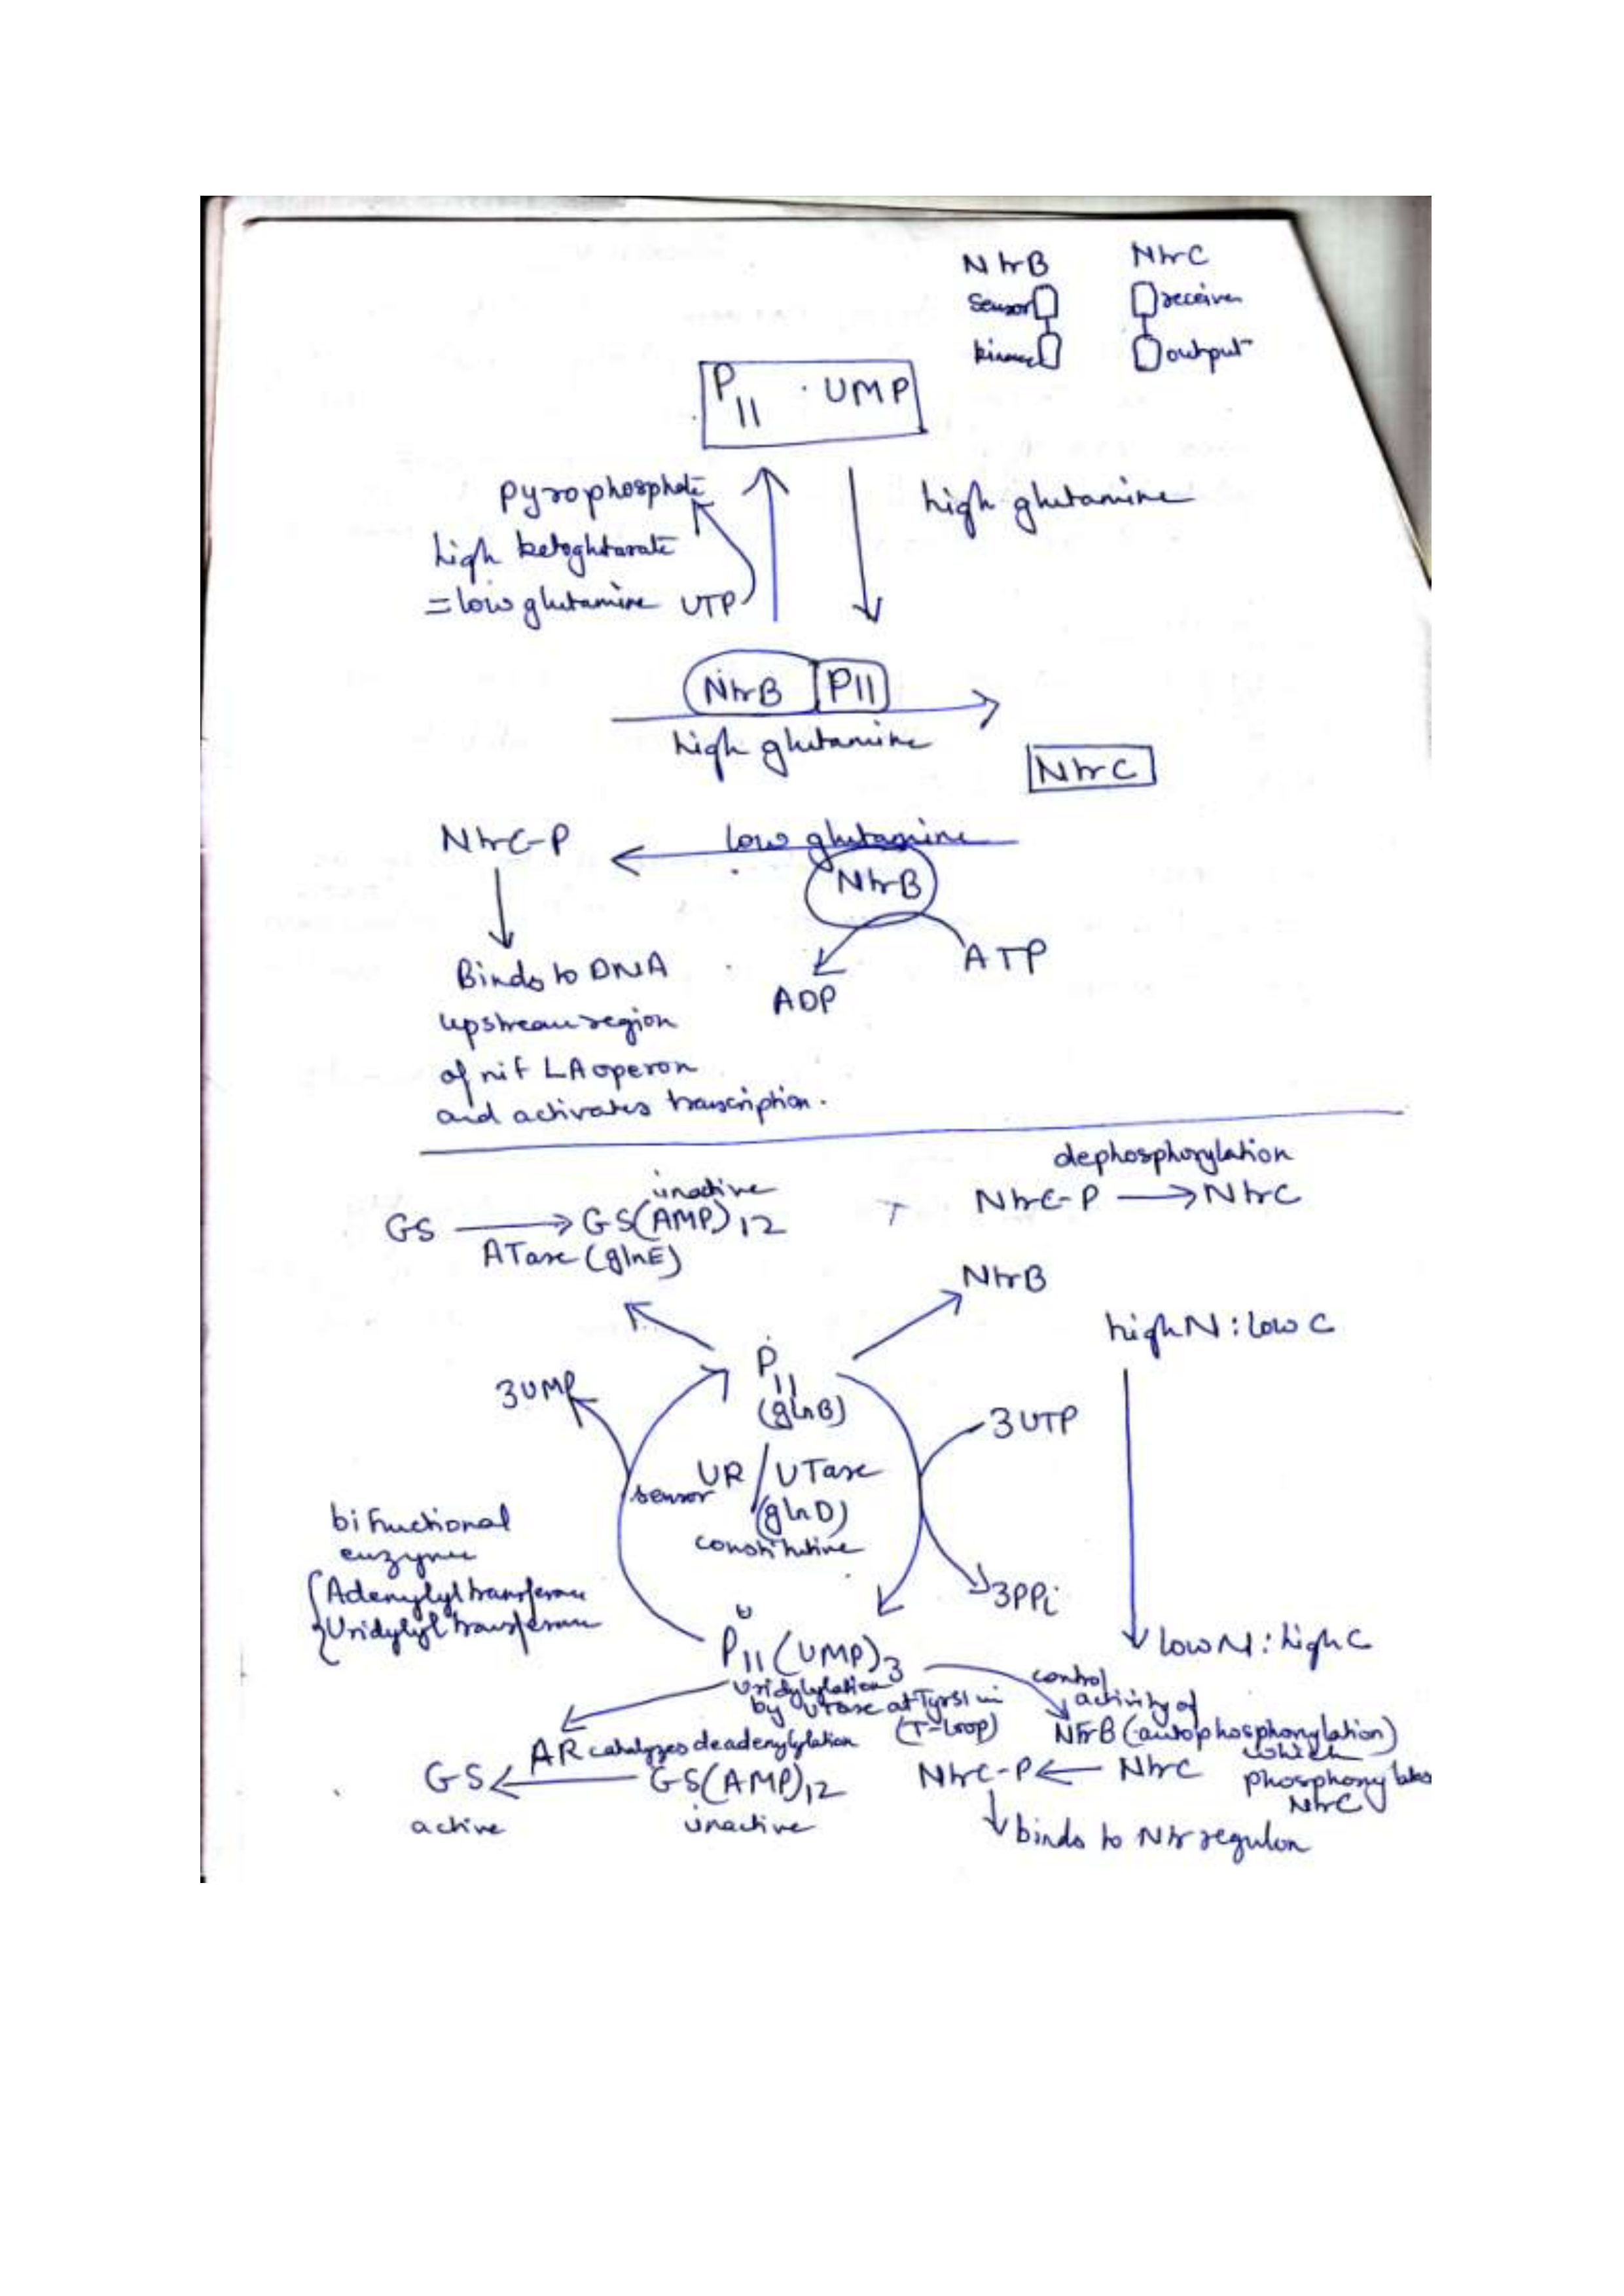 NtrB NtrC
Sensor receiver
kinase output
PII · UMP
pyrophosphate
high ketoglutarate
= low glutamine UTP
high glutamine
NtrB PII
high glutamine
NtrC
NtrC-P
low glutamine
NtrB
ATP
ADP
Binds to DNA
upstream region
of nif LA operon
and activates transcription.
dephosphorylation
NtrC-P → NtrC
inactive
GS → GS(AMP)12
ATase (glnE)
NtrB
high N : low C
PII
(glnB)
3UMP
3UTP
UR / UTase
sensor
(glnD)
constitutive
bifunctional
enzyme
Adenylyl transferase
Uridylyl transferase
3PPi
PII (UMP)3
low N : high C
Uridylylation
by UTase at Tyr51 in
(T-loop)
control
activity of
NtrB (autophosphorylation)
which
phosphorylates
NtrC
AR catalyzes deadenylylation
GS ← GS(AMP)12
active inactive
NtrC-P ← NtrC
binds to Ntr regulon